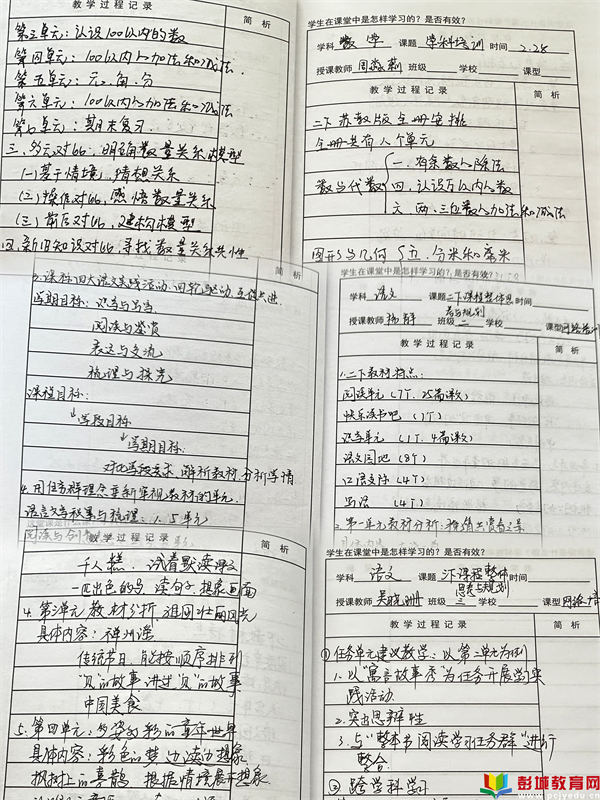 教学过程记录
简析
第三单元：认识100以内的数
第四单元：100以内的加法和减法
第五单元：元、角、分
第六单元：100以内的加法和减法
第七单元：期末复习.
(一)基于情境,
(二)操作对比，感悟数量关系
四.新旧知识对比，寻找数量关系共性
学生在课堂中是怎样学习的？是否有效？
学科 数学 课题 学科培训 时间 2.28
授课教师 班级 学校 课型
教学过程记录
简析
二下苏教版全册安排
全册共有八个单元
数与代数
一.有余数的除法
四.认识万以内的数
六 两、三位数的加法和减法
图形与几何 五.分米和毫米
简析
学期目标：识字与写字
阅读与鉴赏
表达与交流
梳理与探究
课程目标：
↓学段目标
↓学期目标：
对比学段要求，解析教材，分析学情
4.用任务群理念重新审视教材的单元.
学生在课堂中是怎样学习的？是否有效？
学科 语文 课题 二下课程整体思考与规划 时间
授课教师 班级 二 学校 课型 网络培训
教学过程记录
简析
1.二下教材特点：
阅读单元（7个，25篇课文）
快乐读书吧（1个）
识字单元（1个，4篇课文）
语文园地（8个）
口语交际（4个）
写话（4个）
教学过程记录
简析
千人糕，试着默读课文
一匹出色的马 读句子，想象画面
4.第3单元教材分析，祖国壮丽风光
具体内容：神州谣
传统节日，能按顺序排列
“贝”的故事 讲述“贝”的故事
中国美食
5.第四单元：多姿多彩的童年世界
具体内容：彩色的梦 边读边想象
枫树上的喜鹊 根据情境展开想象
学生在课堂中是怎样学习的？是否有效？
学科 语文 课题 下课程整体思考与规划 时间
授课教师 班级 三 学校 课型
教学过程记录
简析
①任务单元建议教学：以第二单元为例
1.以“寓言故事秀”为任务开展学习实
践活动.
2.突出思辨性
3.与“整本书阅读学习任务群”进行
整合.
② 跨学科学习
彭城教育网
www.pcjyedu.cn